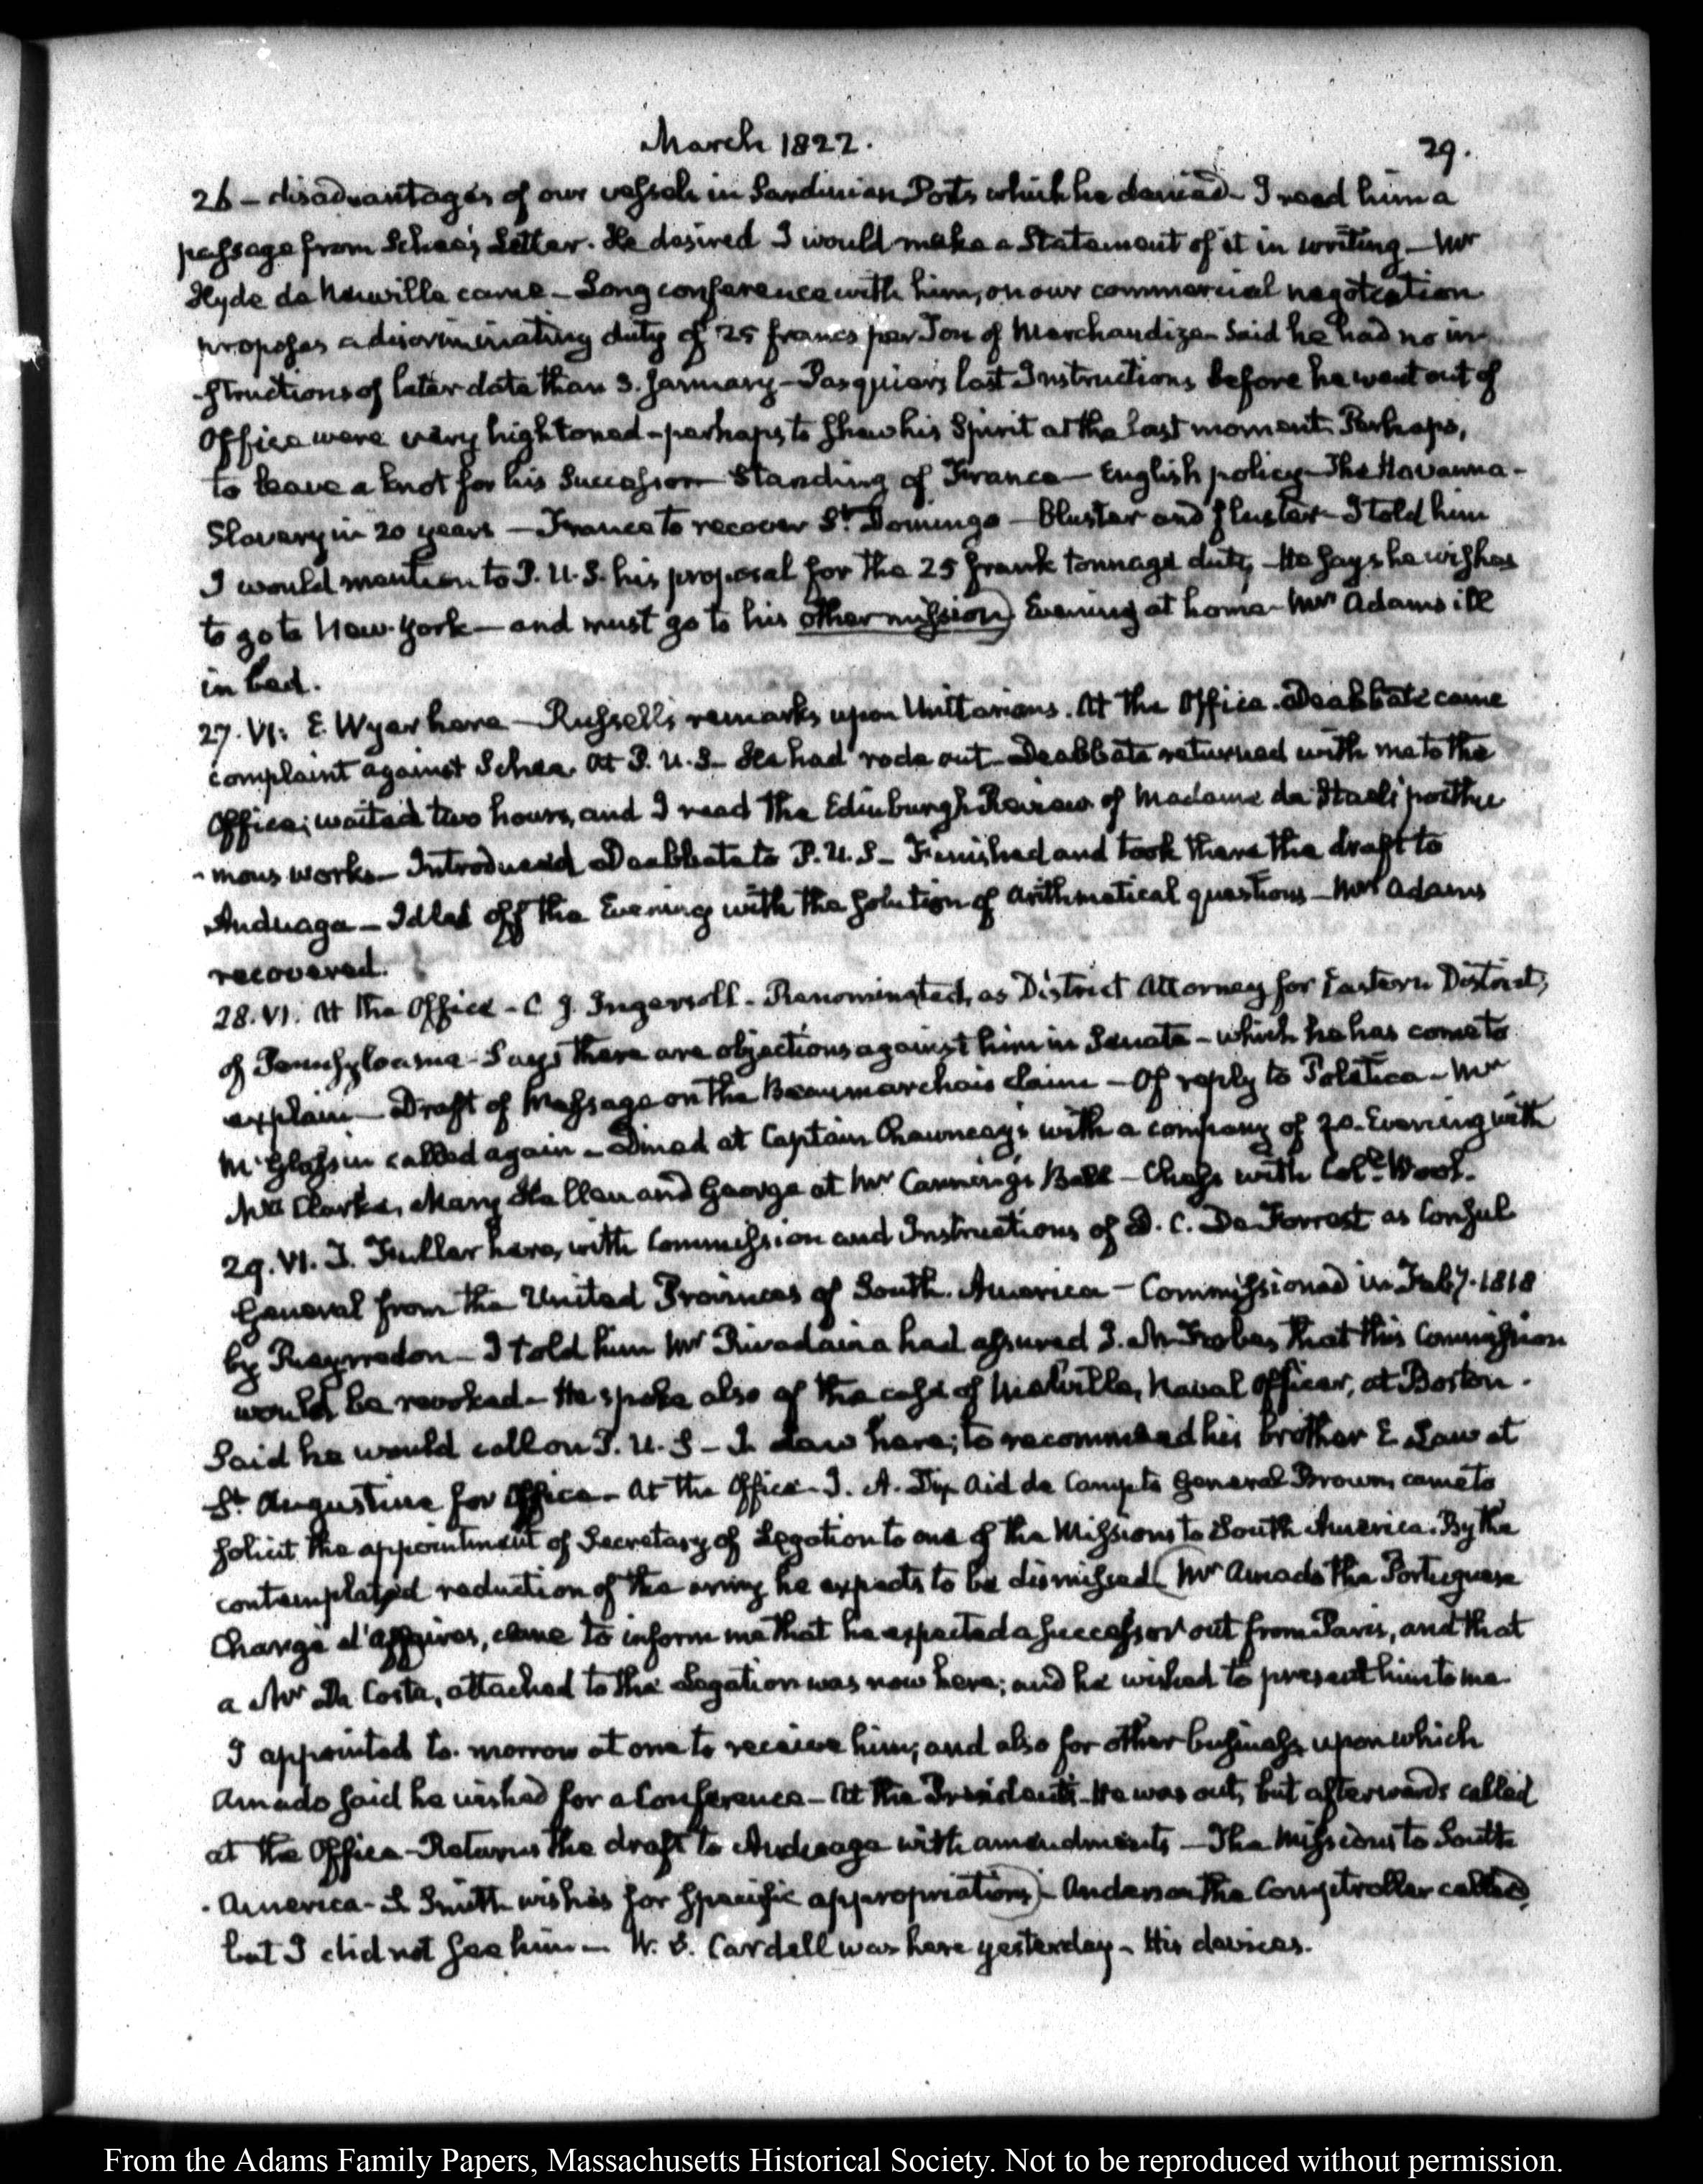 March 1822.
29.
26 - disadvantages of our vessels in Sardinian Ports which he denied - I read him a
passage from Schee's Letter. He desired I would make a Statement of it in writing - Mr
Hyde de Neuville came - Long conference with him, on our commercial negotiation
proposes a discriminating duty of 25 francs per Ton of Merchandize - Said he had no in-
-structions of later date than 3. January - Pasquier's last Instructions before he went out of
Office were very high toned - perhaps to shew his Spirit at the last moment. Perhaps,
to leave a knot for his Successor - Standing of France - English policy - The Havanna -
Slavery in 20 years - France to recover St. Domingo - Bluster and fluster - I told him
I would mention to P. U. S. his proposal for the 25 frank tonnage duty, - He says he wishes
to go to New-York - and must go to his other mission) Evening at home - Mrs Adams ill
in bed.
27. VI: E. Wyer here - Russell's remarks upon Unitarians. At the Office. Deabbate came
complaint against Schee. At P. U. S - He had rode out - Deabbate returned with me to the
Office; waited two hours, and I read the Edinburgh Review of Madame de Stael's posthu
-mous works - Introduced Deabbate to P. U. S - Finished and took there the draft to
Anduaga - Idled off the Evening with the solution of arithmetical questions - Mrs Adams
recovered.
28. VI. At the Office - C. J. Ingersoll - Renominated, as District Attorney for Eastern District,
of Pennsylvania - Says there are objections against him in Senate - which he has come to
explain - Draft of Message on the Beaumarchais claim - Of reply to Poletica - Mr
McGlassin called again - Dined at Captain Chauncey's with a company of 20. Evening with
Mrs Clarke, Mary Hellen and George at Mr Canning's Ball - Chess with Coll. Wool.
29. VI. T. Fuller here, with Commission and Instructions of D. C. De Forrest as Consul
General from the United Provinces of South. America - Commissioned in Feby. 1818
by Pueyrredon - I told him Mr Rivadavia had assured J. M. Forbes that this Commission
would be revoked - He spoke also of the case of Melville, Naval Officer, at Boston.
Said he would call on P. U. S - T. Law here; to recommend his brother E. Law at
St. Augustine for Office - At the Office - J. A. Dix Aid de Camp to General Brown, came to
solicit the appointment of Secretary of Legation to one of the Missions to South America. By the
contemplated reduction of the army he expects to be dismissed (Mr Amado the Portuguese
Chargé d'Affaires, came to inform me that he expected a successor out from Paris, and that
a Mr Da Costa, attached to the Legation was now here; and he wished to present him to me.
I appointed to. morrow at one to receive him, and also for other business upon which
Amado said he wished for a Conference - At the President's - He was out, but afterwards called
at the Office - Returns the draft to Anduaga with amendments - The Missions to South
-America - S. Smith wishes for specific appropriations) - Anderson the Comptroller called,
but I did not see him - W. S. Cardell was here yesterday - His devices.
From the Adams Family Papers, Massachusetts Historical Society. Not to be reproduced without permission.